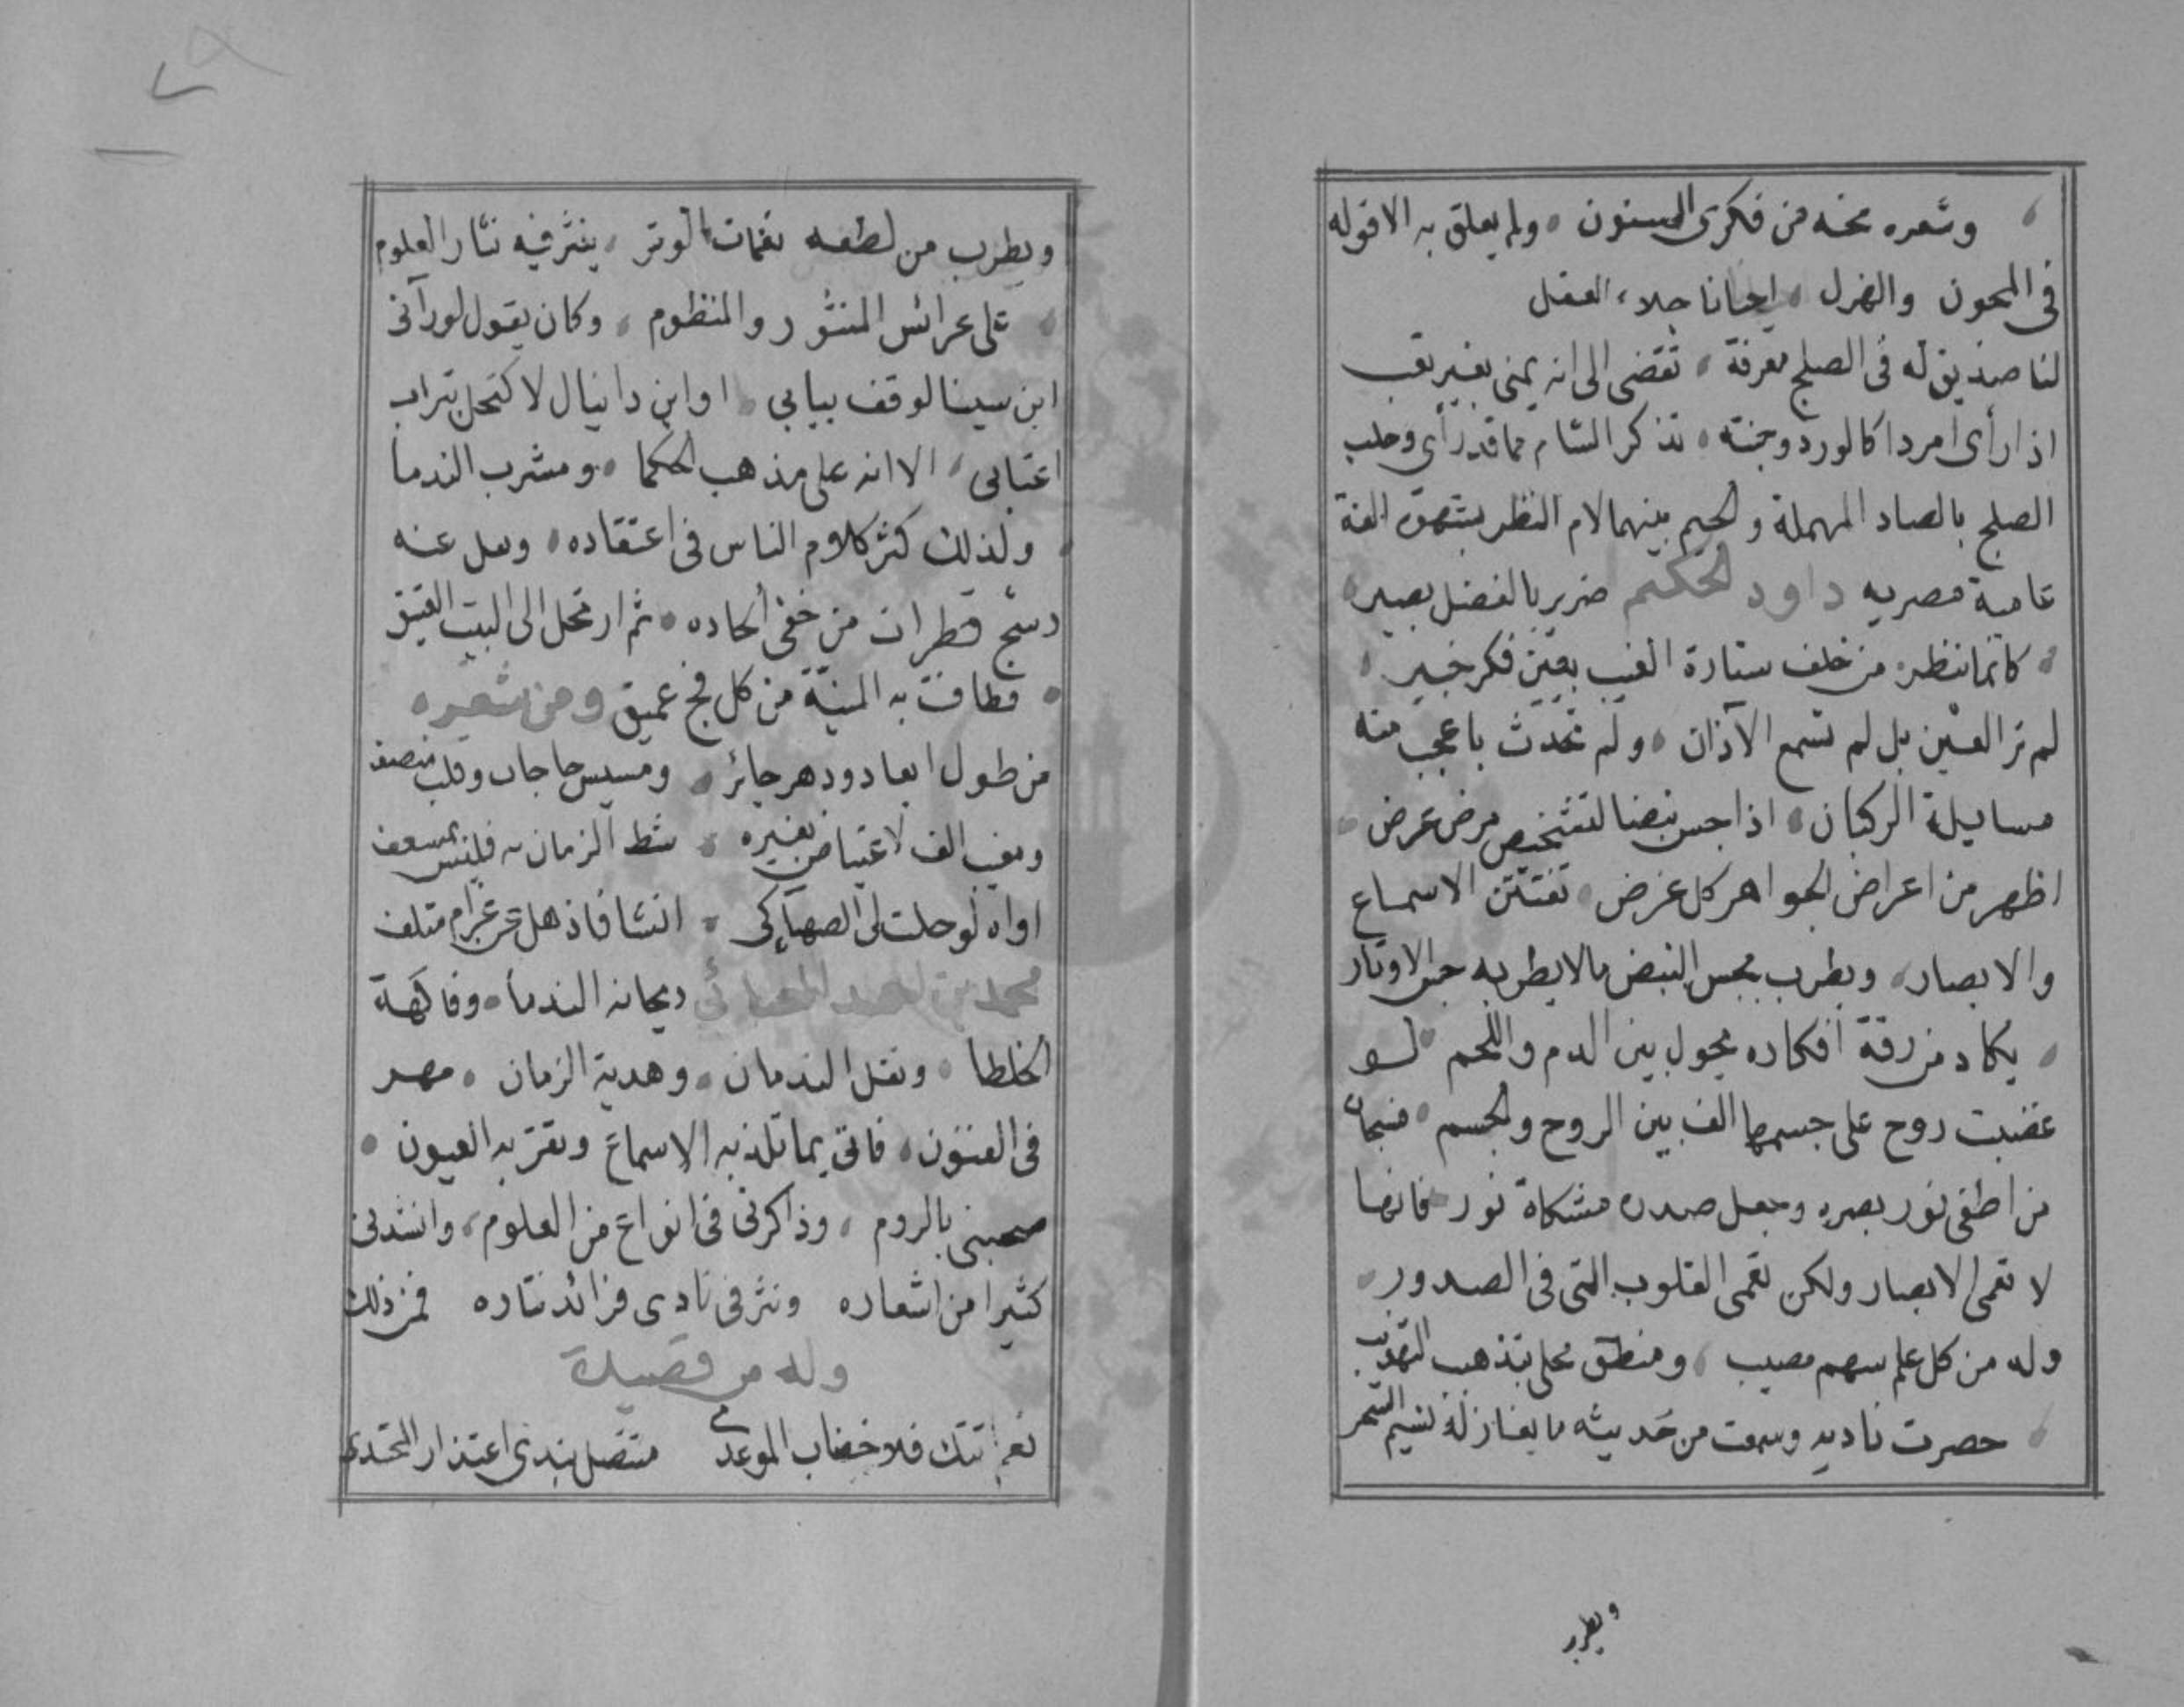 وشعره محته من فكرى السنون ولم يعلق به الا قوله
فى المجون والهزل احيانا جلاء العقل
لنا صديق له فى الصلج معرفة تقضى الى انه يمنى بغير تعب
اذا رأى امردا كالورد وجنته تذكر الشام مما قد رأى وحلب
الصلج بالصاد المهملة والجيم بينهما لام النظر بشهوة لغة
عامية مصريه داود الحكيم ضرير بالفضل بصير
كانما ينظر من خلف ستارة الغيب بعين فكر خبير
لم تر العين بل لم تسمع الآذان ولم تحدث باعجب منه
مسايلة الركبان اذا جس نبضا لتشخيص مرض عرض
اظهر من اعراض الجواهر كل غرض تفتتن الاسماع
والابصار ويطرب بجس النبض مالا يطر به جس الاوتار
يكاد من رقة افكاره يحول بين الدم واللحم لو
غضبت روح على جسمها الف بين الروح والجسم فسبحان
من اطفى نور بصره وجعل صدره مشكاة نور فانها
لا تعمى الابصار ولكن تعمى القلوب التى فى الصدور
وله من كل علم سهم مصيب ومنطق محلى بتذهيب التهذيب
حضرت ناديه وسمعت من حديثه ما يغازله نسيم السحر
ويطرب
ويطرب من لطفه نغمات الوتر ينثر فيه نثار العلوم
على عرائس المنثور والمنظوم وكان يقول لو رآنى
ابن سينا لوقف ببابي او ابن دانيال لاكتحل بتراب
اعتابى الا انه على مذهب الحكما ومشرب الندما
ولذلك كثر كلام الناس فى اعتقاده ونقل عنه
رشح قطرات من خفى الحاده ثم ارتحل الى البيت العتيق
فطافت به المنية من كل فج عميق ومن شعره
من طول ابعاد ودهر جائر ومسيس حاجات وقلب منصف
ومغيب الف لا اعتياض بغيره شط الزمان به فليس بمسعف
اواه لو حلت لى الصهباء كى انشا فاذهل عن غرام متلف
محمد بن ريحانه الندما وفاكهة
الخلطا ونقل الندمان وهدية الزمان مهر
فى الفنون فاتى بما تلذ به الاسماع وتقر به العيون
صحبنى بالروم وذاكرنى فى انواع من العلوم وانشدنى
كثيرا من اشعاره ونثر فى نادى فرائد نثاره فمن ذلك
وله من قصيدة
نعم اتتك فلا خضاب الموعد متنصل يبدى اعتذار المجتدى